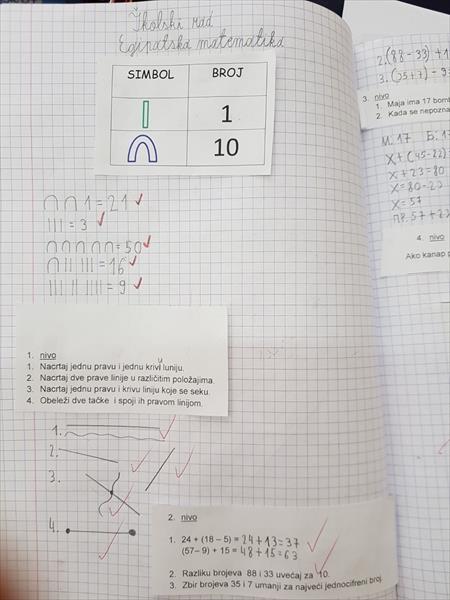 Školski rad
Egipatska matematika
SIMBOL BROJ
1
10
∩∩1=21
III=3
∩∩∩∩∩=50
∩II III=16
III II IIII=9
1. nivo
1. Nacrtaj jednu pravu i jednu krivu luniju.
2. Nacrtaj dve prave linije u različitim položajima.
3. Nacrtaj jednu pravu i krivu liniju koje se seku.
4. Obeleži dve tačke i spoji ih pravom linijom.
1.
2.
3.
4.
2. nivo
1. 24 + (18 – 5) = 24+13=37
(57– 9) + 15 = 48+15=63
2. Razliku brojeva 88 i 33 uvećaj za 10.
3. Zbir brojeva 35 i 7 umanji za najveći jednocifreni broj.
2.(88-33)+1
3.(35+7)-9
3. nivo
1. Maja ima 17 bomb
2. Kada se nepozna
M:17 Б:1
x+(45-22)
x+23=80
x=80-23
x=57
57+2
4. nivo
Ako kanap p